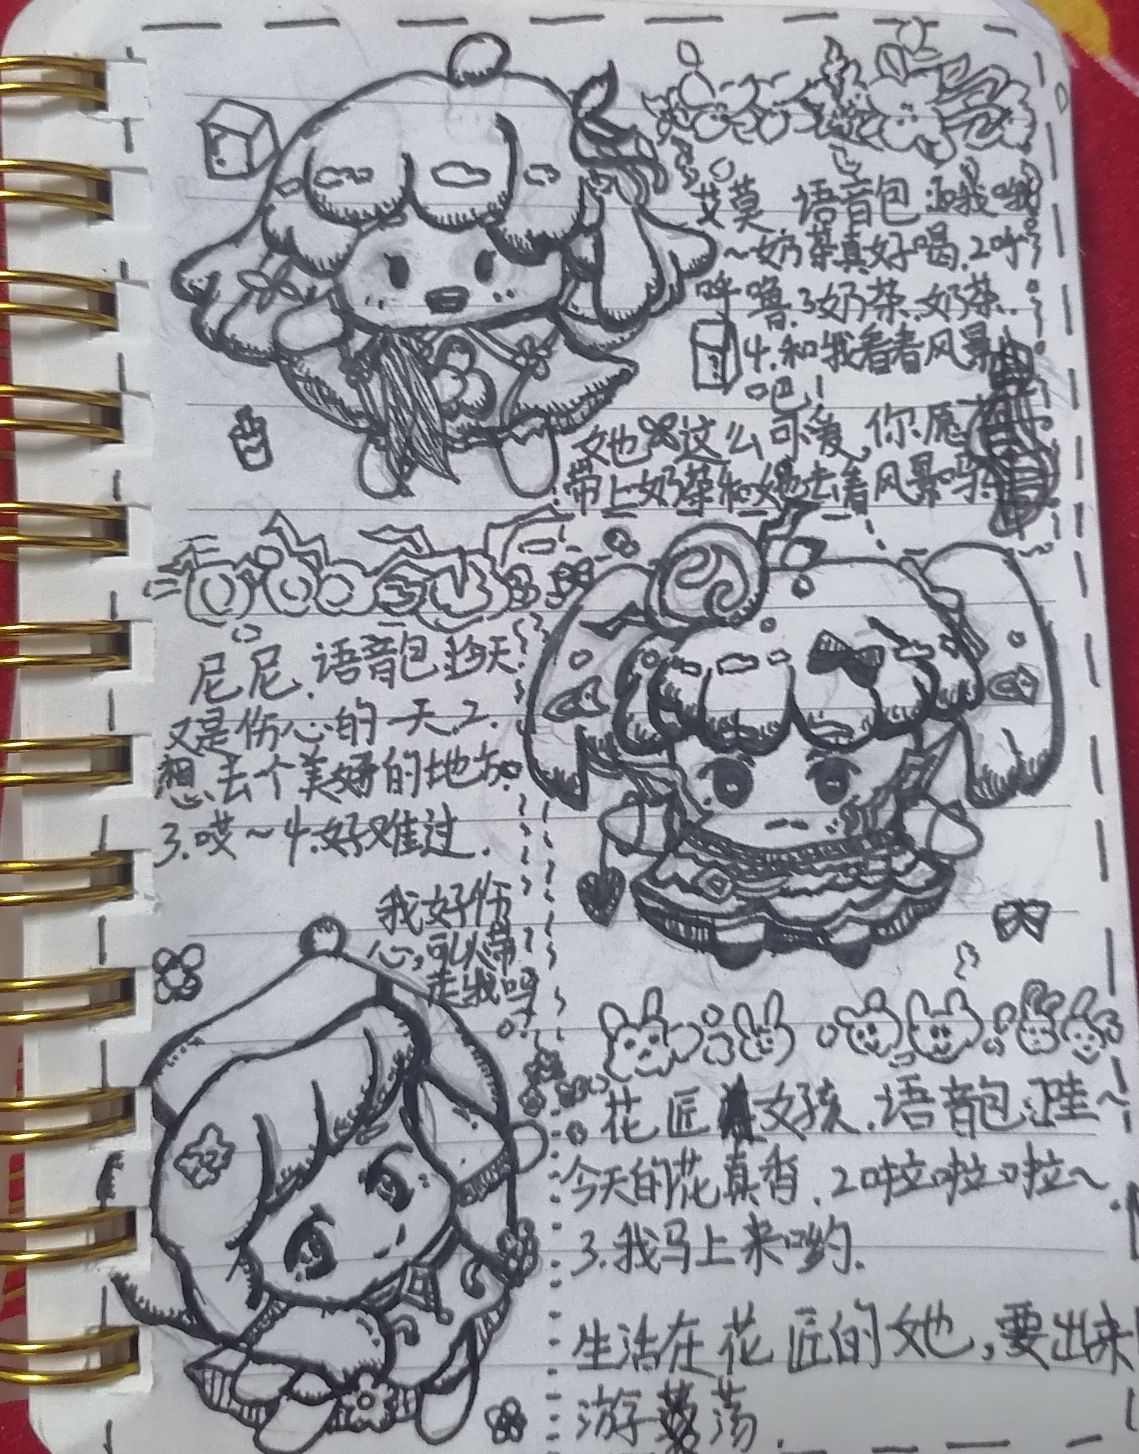 艾莫. 语音包.1.我哦
~奶茶真好喝.2.咕
呼噜.3.奶茶.奶茶.
4.和我看看风景
吧!
她这么可爱,你愿
带上奶茶和她去看风景吗.
尼尼. 语音包.1.今天
又是伤心的一天.2.
想去个美好的地方.
3.哎~4.好难过.
我好伤
心,可以带
走我吗
花匠女孩.语音包.1.哇~
今天的花真香.2.啦啦啦~
3.我马上来哟.
生活在花匠的她,要出来
游荡.